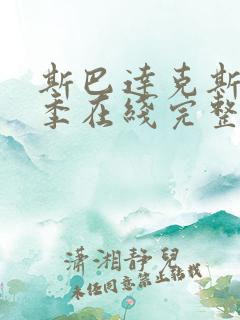 斯巴达克斯
季在线完整
潇湘静儿
未经同意禁止转载